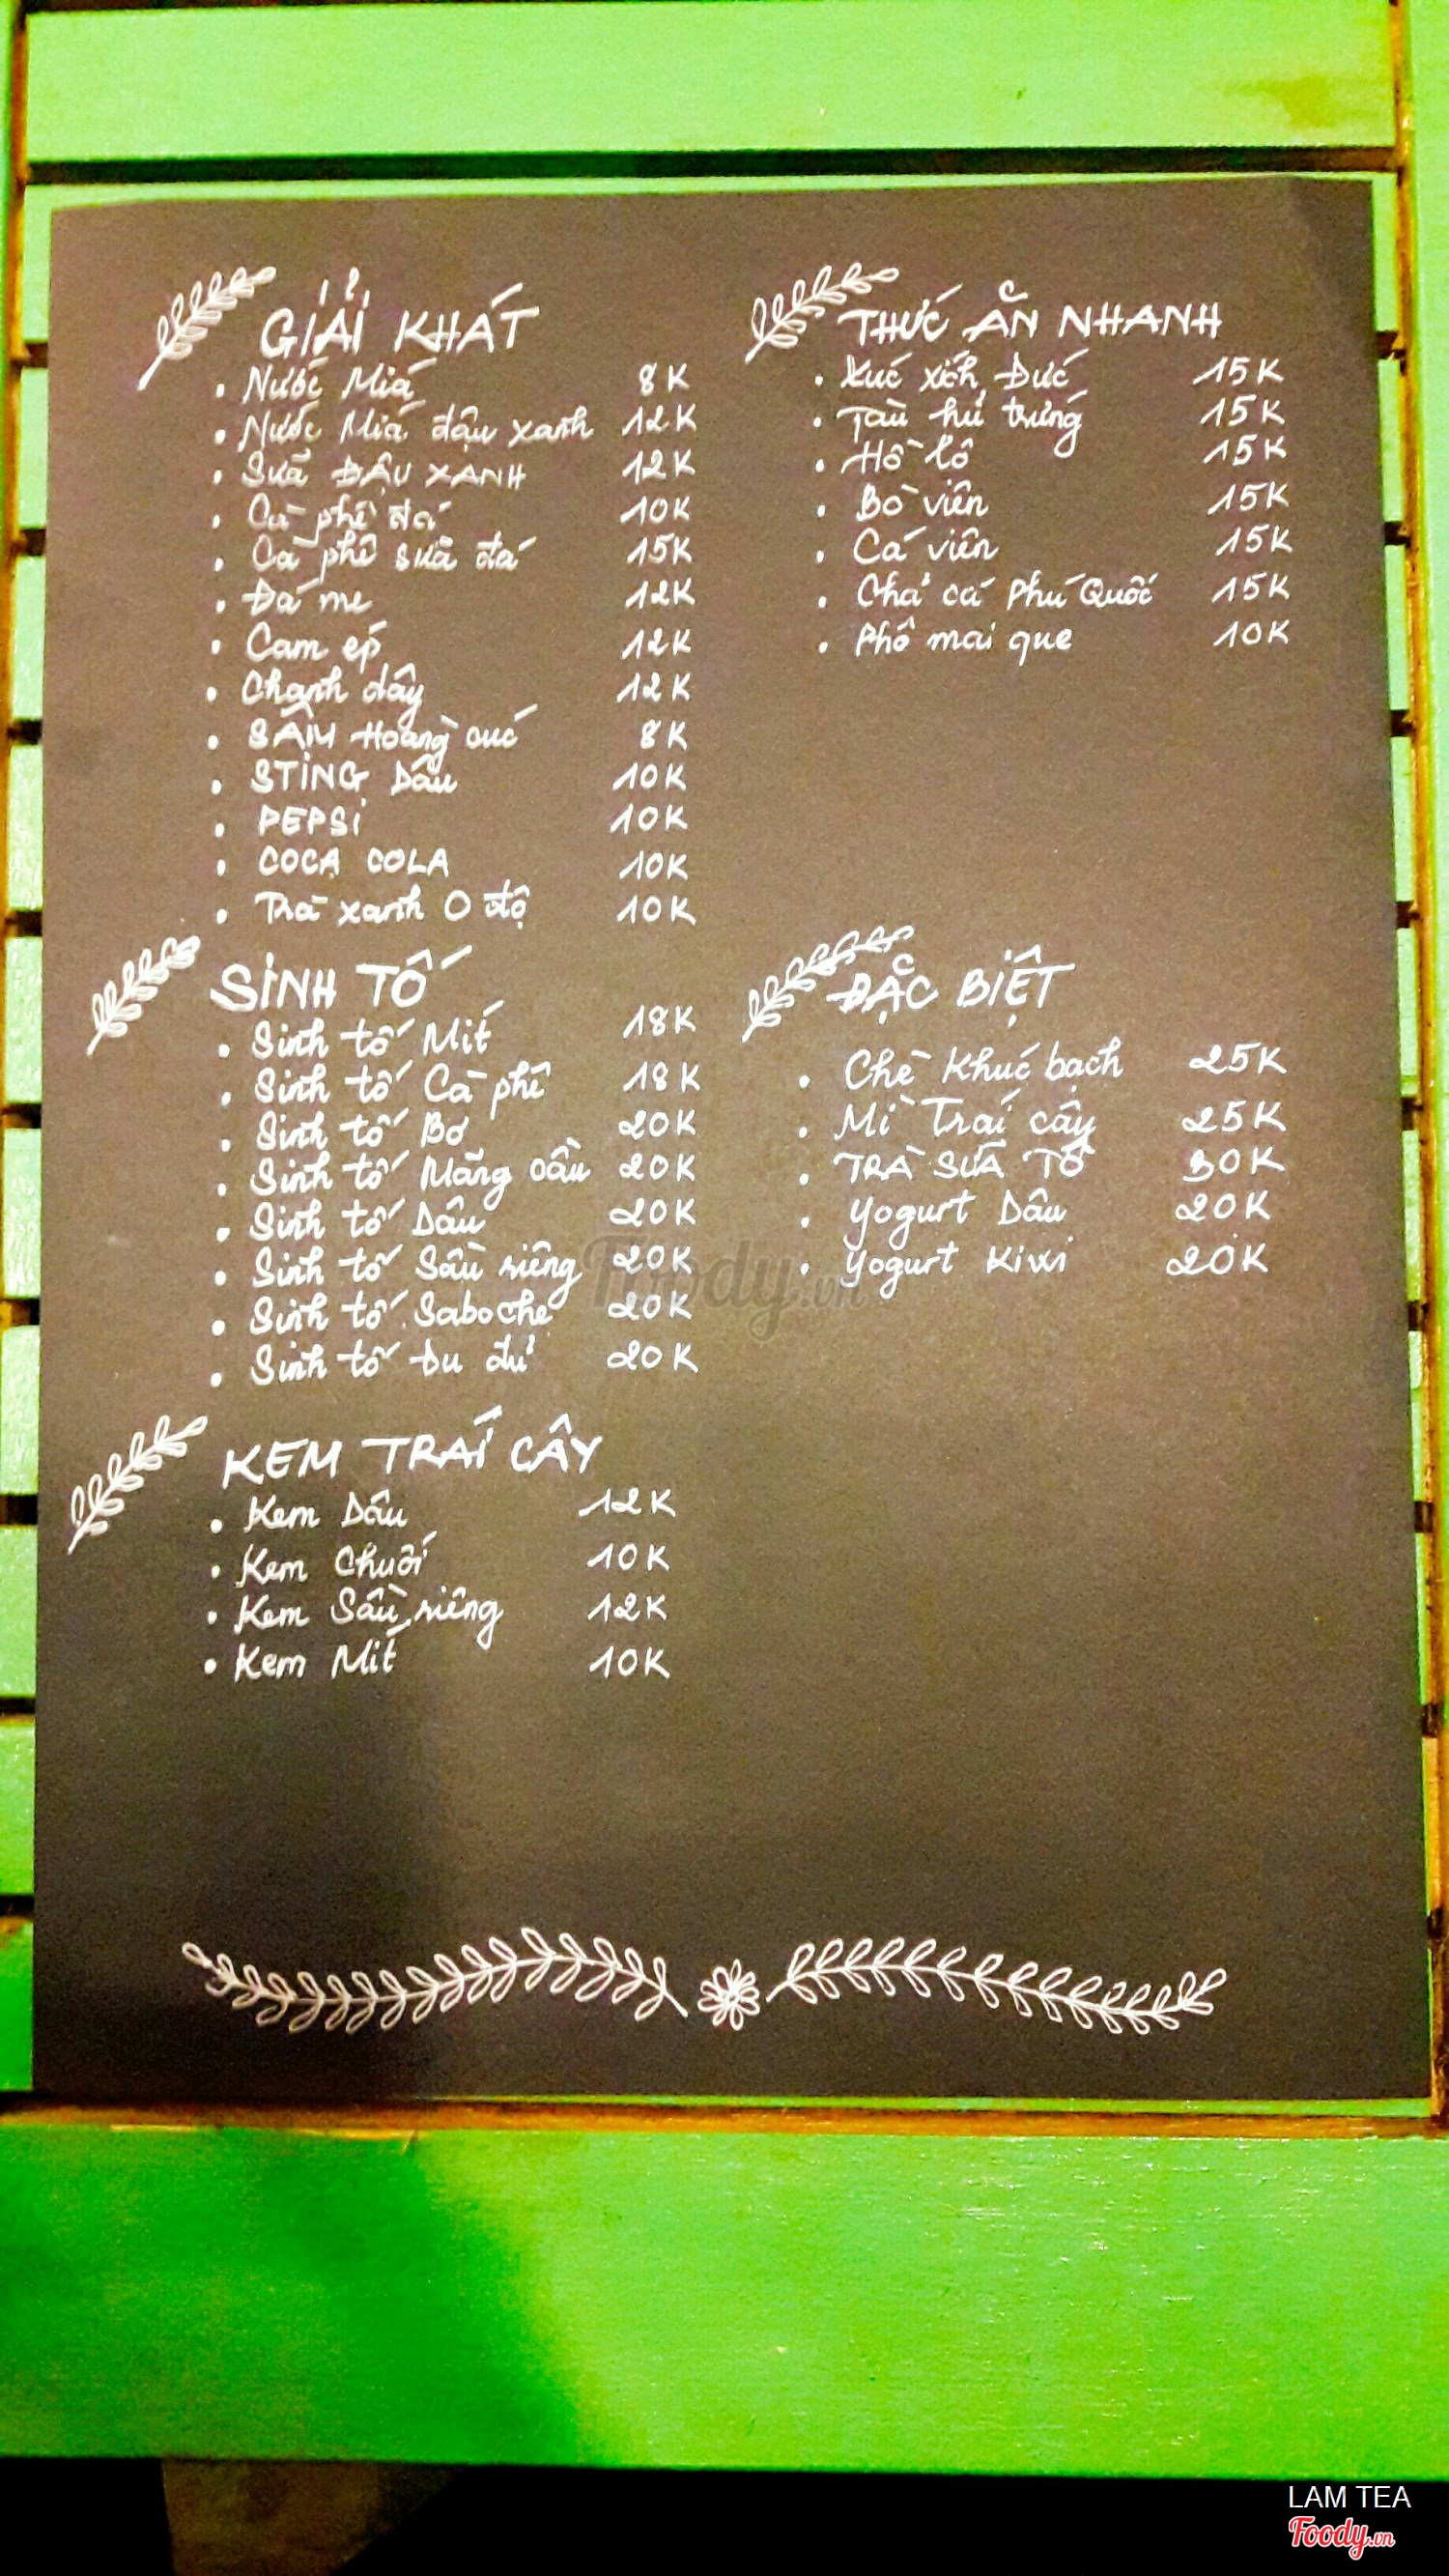 GIẢI KHÁT
. Nước Miá 8K
. Nước Miá đậu xanh 12K
. Sữa ĐẬU XANH 12K
. Cà phê đá 10K
. Cà phê sữa đá 15K
. Đá me 12K
. Cam ép 12K
. Chanh dây 12K
. SÂM Hoàng cúc 8K
. STING Dâu 10K
. PEPSI 10K
. COCA COLA 10K
. Trà xanh O độ 10K
SINH TỐ
. Sinh tố Mít 18K
. Sinh tố Cà phê 18K
. Sinh tố Bơ 20K
. Sinh tố Mãng cầu 20K
. Sinh tố Dâu 20K
. Sinh tố Sầu riêng 20K
. Sinh tố Saboche 20K
. Sinh tố Đu đủ 20K
KEM TRÁI CÂY
. Kem Dâu 12K
. Kem Chuối 10K
. Kem Sầu riêng 12K
. Kem Mít 10K
THỨC ĂN NHANH
. Xúc xích Đức 15K
. Tàu hủ trứng 15K
. Hồ lô 15K
. Bò viên 15K
. Cá viên 15K
. Chả cá Phú Quốc 15K
. Phô mai que 10K
ĐẶC BIỆT
. Chè Khúc bạch 25K
. Mì Trái cây 25K
. TRÀ SỮA TÔ 30K
. Yogurt Dâu 20K
. Yogurt Kiwi 20K
Foody.vn
LAM TEA
Foody.vn